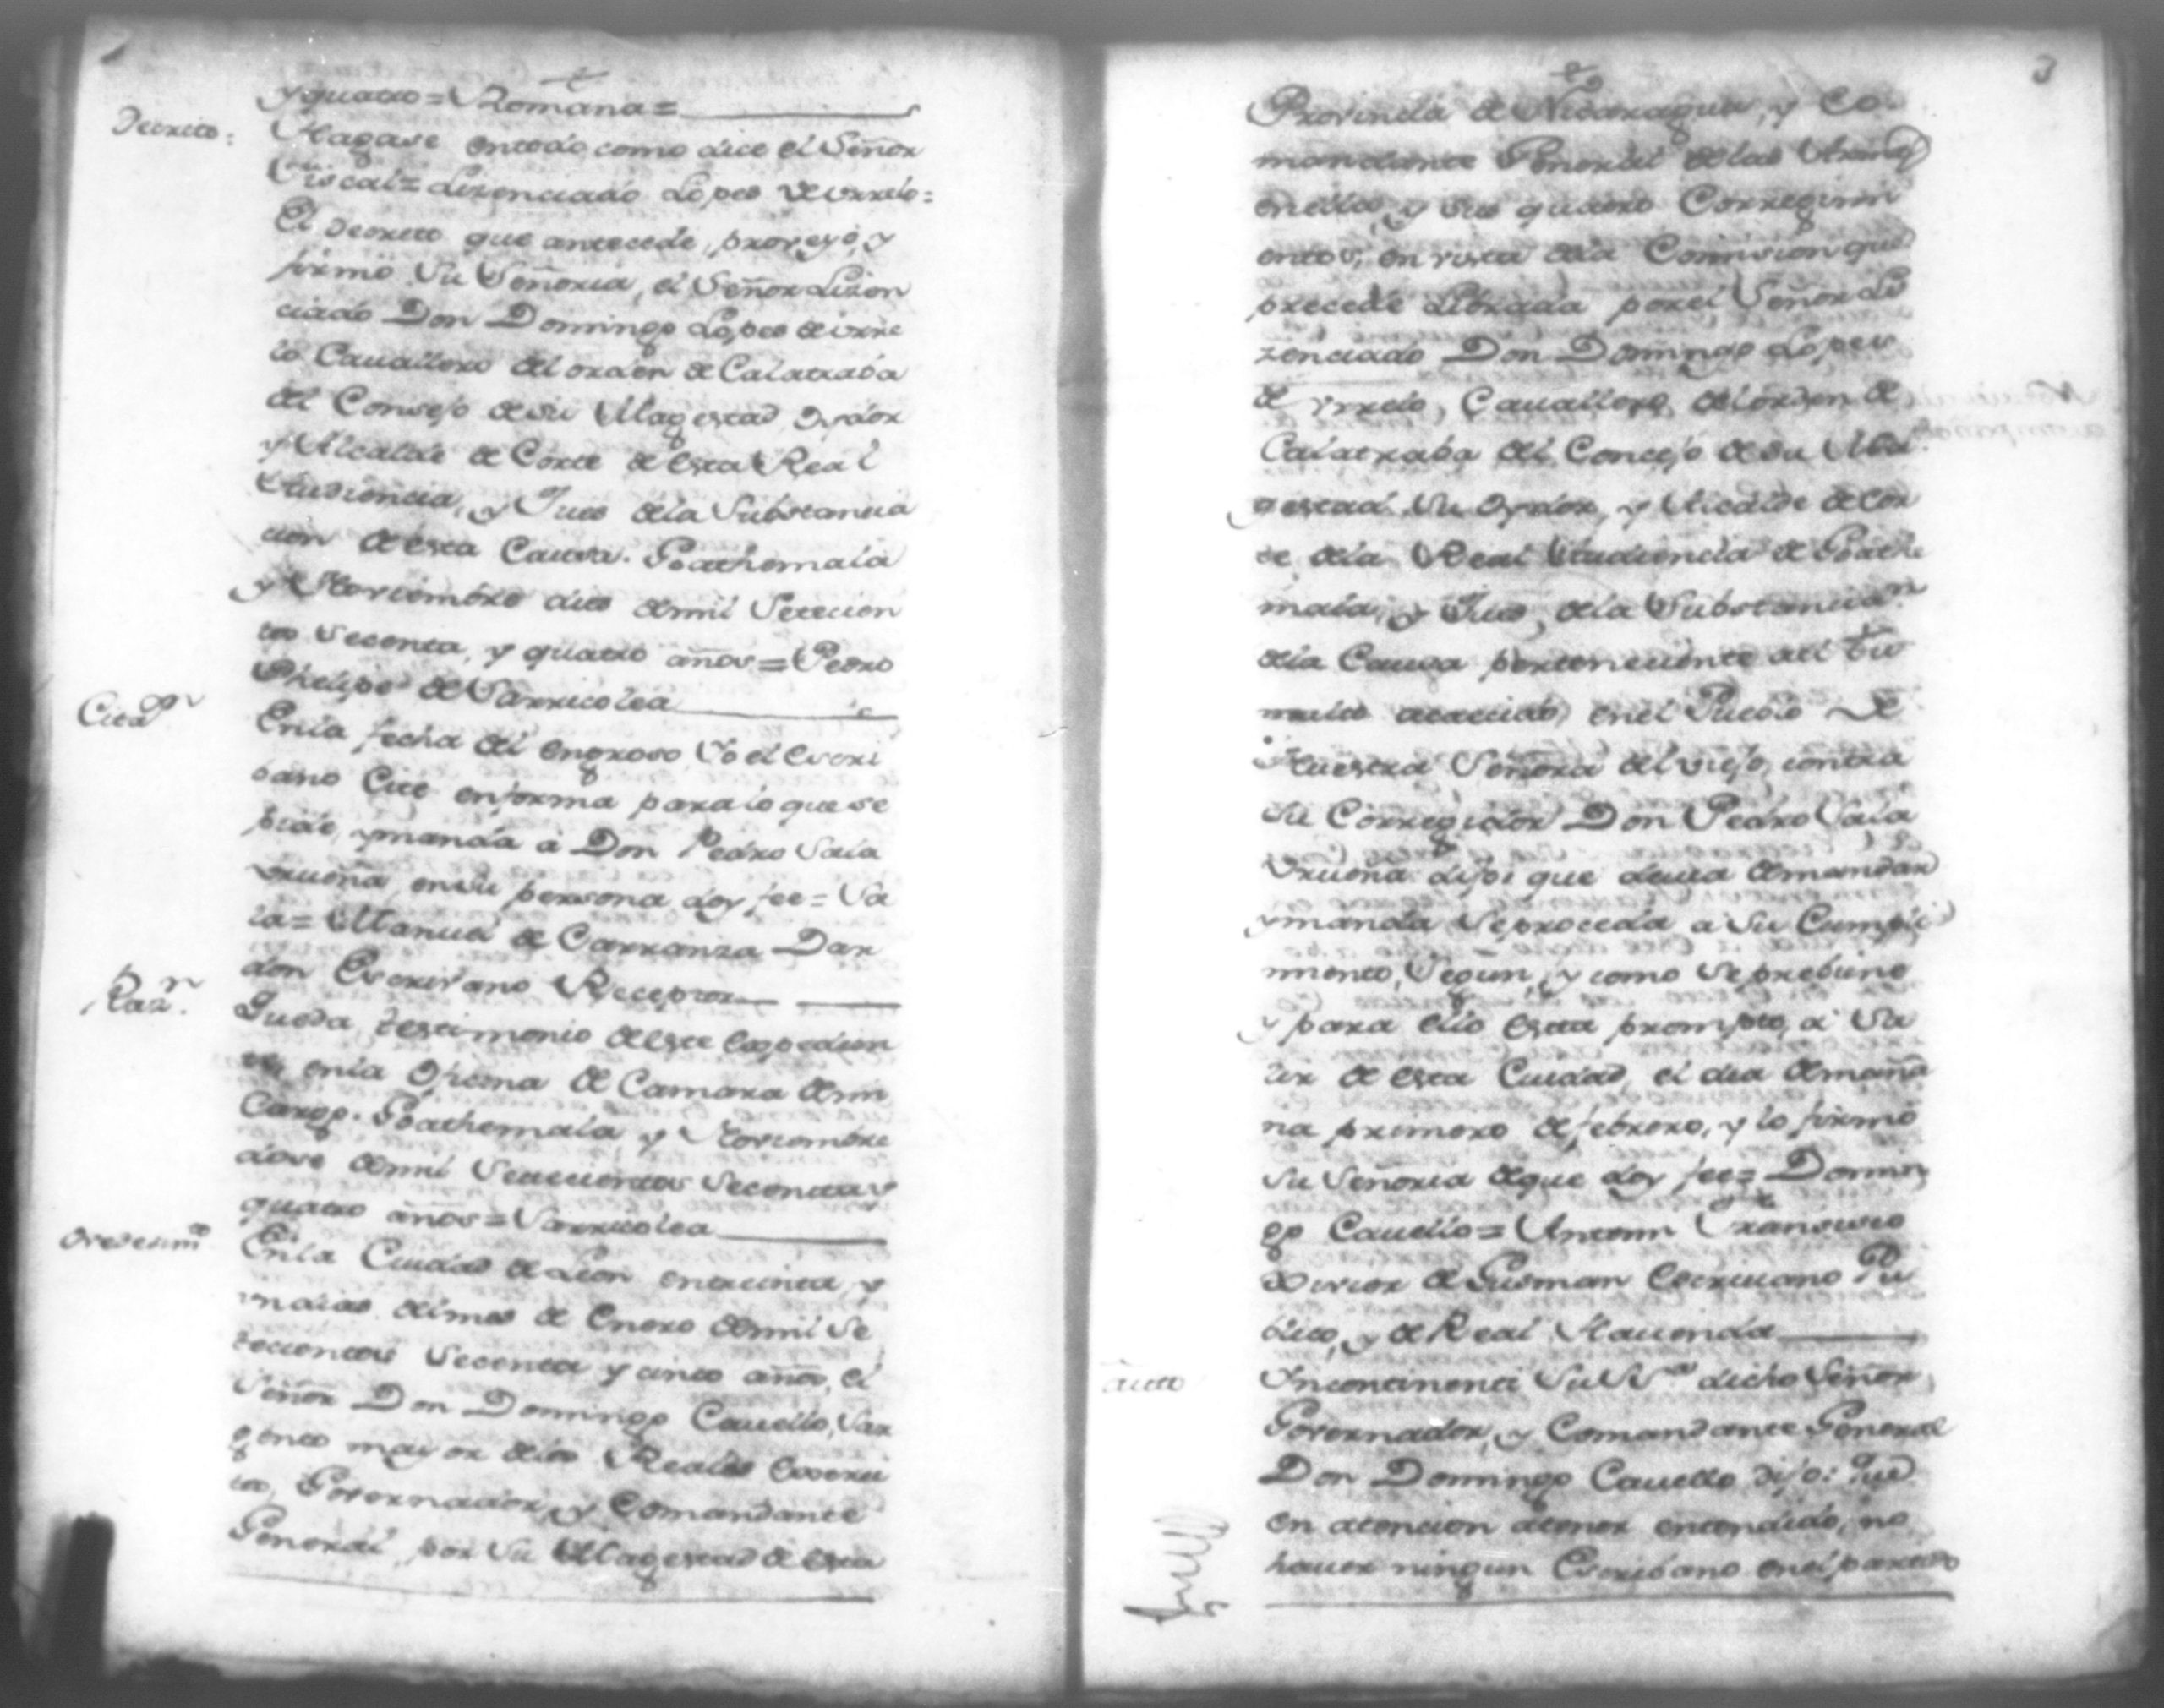 y quatro = Romana =
Decreto =
Hagase entodo como dice el Señor
Fiscal = Lizenciado Lopes de vrrelo =
El Decreto que antecede, proveyó, y
firmó Su Señoria, el Señor Lizen
ciado Don Domingo Lopes de vrre
lo Cauallero del orden de Calatraba
del Consejo de su Magestad Oydor
y Alcalde de Corte de esta Real
Audiencia, y Jues dela Substancia
cion de esta Causa. Goathemala
y Noviembre dies de mil Setecien
tos Secenta, y quatro años = Pedro
Phelipe de Sarricolea
Citaon
Enla fecha del engroso Yo el Escri
bano Cité enforma para lo que se
pide, y manda à Don Pedro Sala
vrueña, ensu persona doy fee = Sa
la = Manuel de Carranza Dar
don Escrivano Receptor
Razn.
Queda testimonio de este Expedien
te, enla Oficina de Camara de mi
Cargo. Goathemala, y Noviembre
dose de mil Setecientos Secenta y
quatro años = Sarricolea
Ovedesimto
Enla Ciudad de Leon entreinta, y
vn dias del mes de Enero de mil Se
tecientos Secenta y cinco años, el
Señor Don Domingo Cauello, Sar
gento mayor delos Reales Exserci
tos, Governador, y Comandante
General, por Su Magestad de esta
3
Provincia de Nicaragua, y Co
mandante General delas Armas
en ella, y sus quatro Corregimi
entos, en vista dela Comision que
precede librada por el Señor Li
zenciado Don Domingo Lopes
de vrrelo, Cauallero del orden de
Calatraba del Concejo de su Ma
gestad Su Oydor, y Alcalde de Cor
te dela Real Audiencia de Goathe
mala, y Jues, dela Substanciaon
dela Causa perteneciente al tu
multo acaecido, enel Pueblo de
Nuestra Señora del viejo, contra
su Corregidor Don Pedro Sala
vrueña dijo: que deuia de mandar
y manda Seproceda a Su Cumpli
miento, Segun, y como Se prebiene
y para ello esta prompto, à sa
lir de esta Ciudad, el dia de maña
na primero de febrero, y lo firmó
Su Señoria de que doy fee = Domin
go Cauello = Antem Fransisco
de Gusman Escriuano Pu
blico, y de Real Hacienda
auto
Yncontinenti Su Sa dicho Señor
Governador, y Comandante General
Don Domingo Cauello dijo: Que
en atencion atener entendido, no
hauer ningun Escribano enel partido